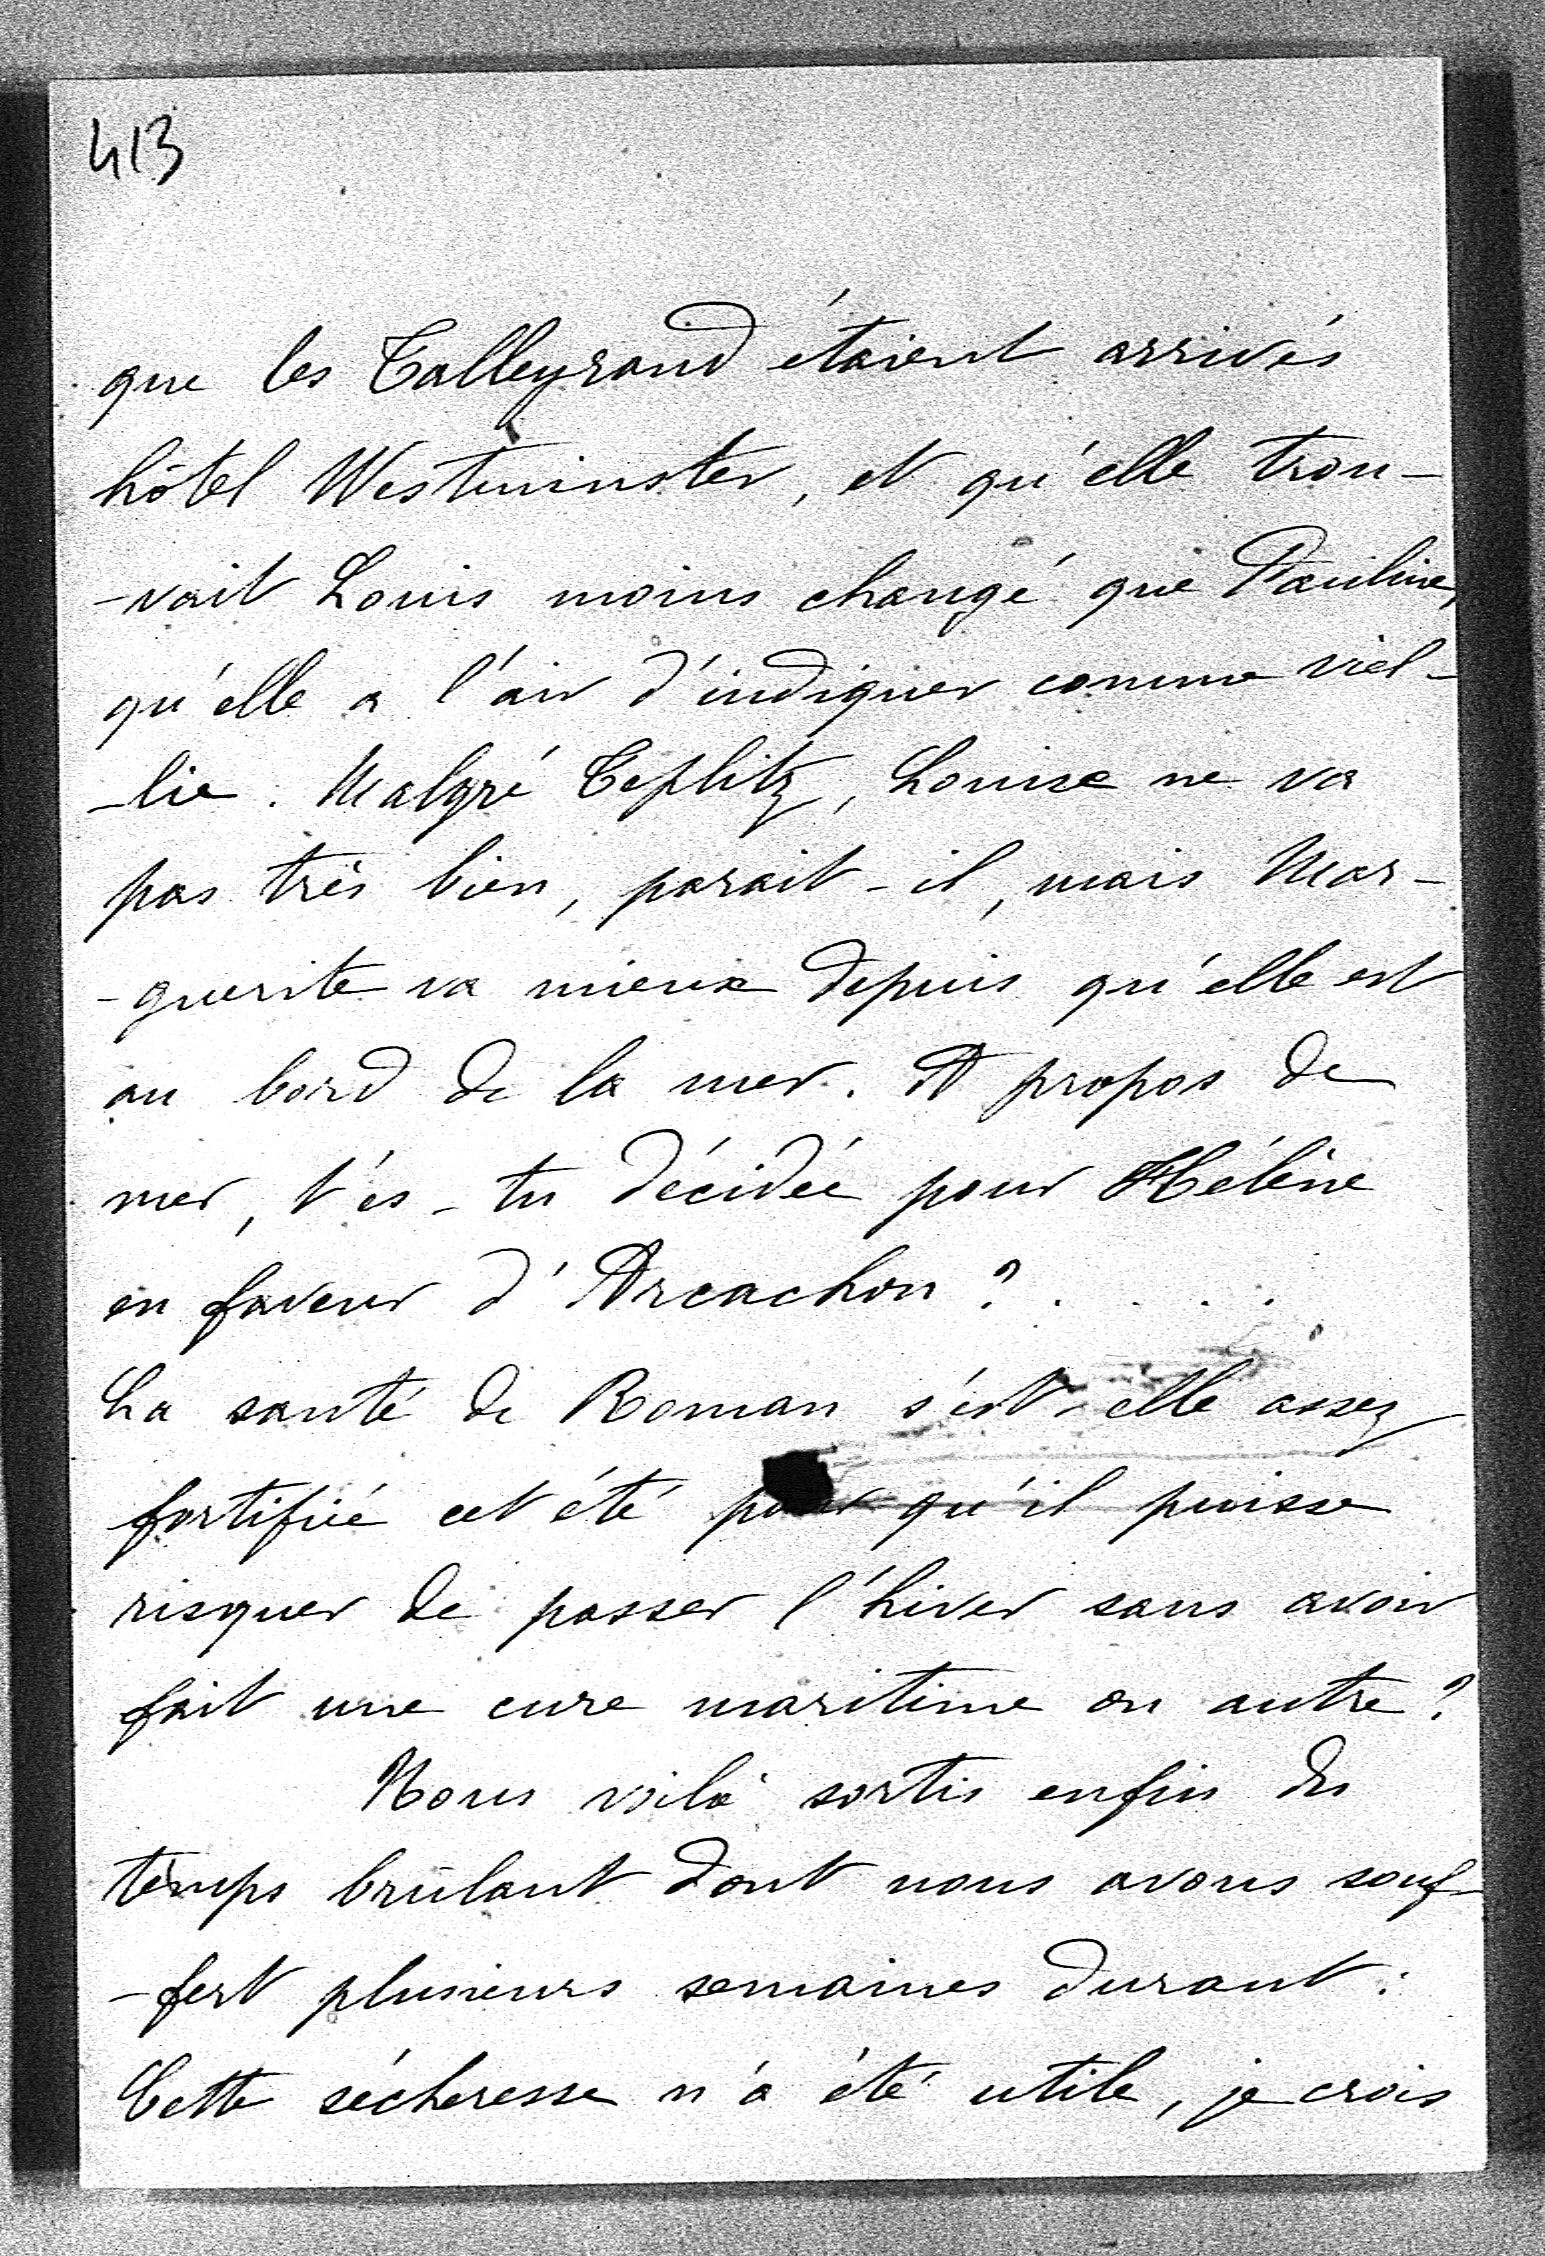 413
que les Talleyrand étaient arrivés
hôtel Westminster, et qu'elle trou-
-vait Louis moins changé que Pauline,
qu'elle a l'air d'indiquer comme viel-
-lie. Malgré Teplitz, Louise ne va
pas très bien, parait-il, mais Mar-
-guerite va mieux depuis qu'elle est
au bord de la mer. A propos de
mer, t'es-tu décidée pour Hélène
en faveur d'Arcachon? . . . .
La santé de Roman s'est-elle assez
fortifiée cet été pour qu'il puisse
risquer de passer l'hiver sans avoir
fait une cure maritime ou autre?
Nous voilà sortis enfin du
temps brûlant dont nous avons souf-
-fert plusieurs semaines durant:
Cette sécheresse n'a été utile, je crois